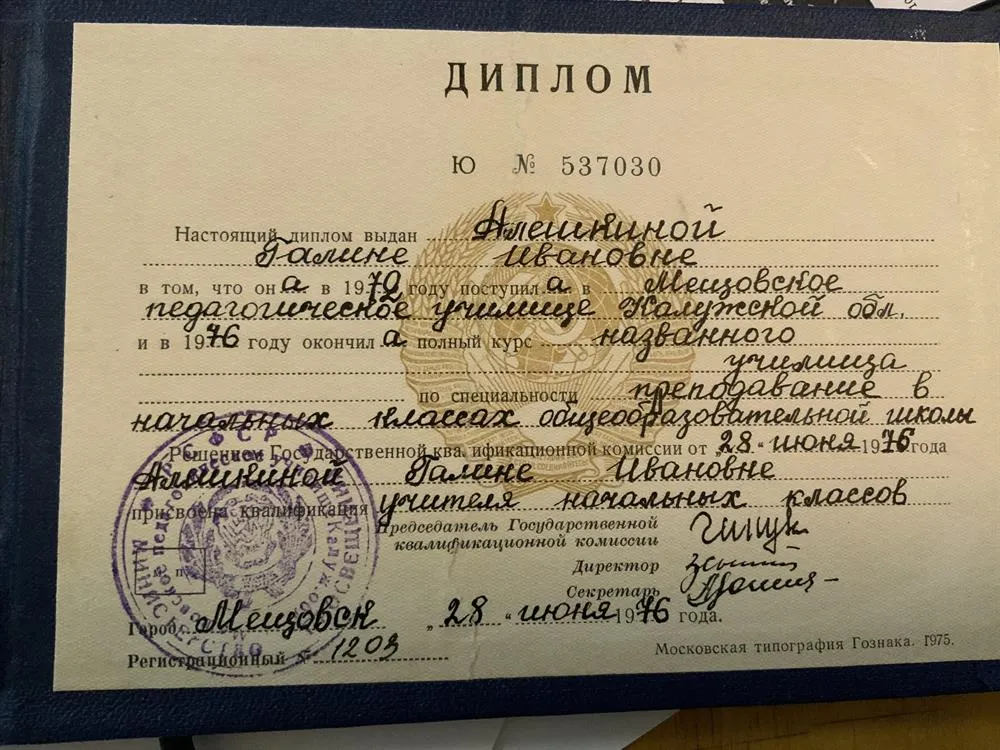 ДИПЛОМ
Ю № 537030
Настоящий диплом выдан Алешкиной
Галине Ивановне
в том, что она в 1972 году поступила в Мещовское
педагогическое училище Калужской обл.
и в 1976 году окончила полный курс названного
училища
по специальности преподавание в
начальных классах общеобразовательной школы
Решением Государственной квалификационной комиссии от „28“ июня 1976 года
Алешкиной Галине Ивановне
присвоена квалификация учителя начальных классов
Председатель Государственной
квалификационной комиссии
Директор
Секретарь
М. П.
Город Мещовск „28“ июня 1976 года.
Регистрационный № 1203
Московская типография Гознака. 1975.